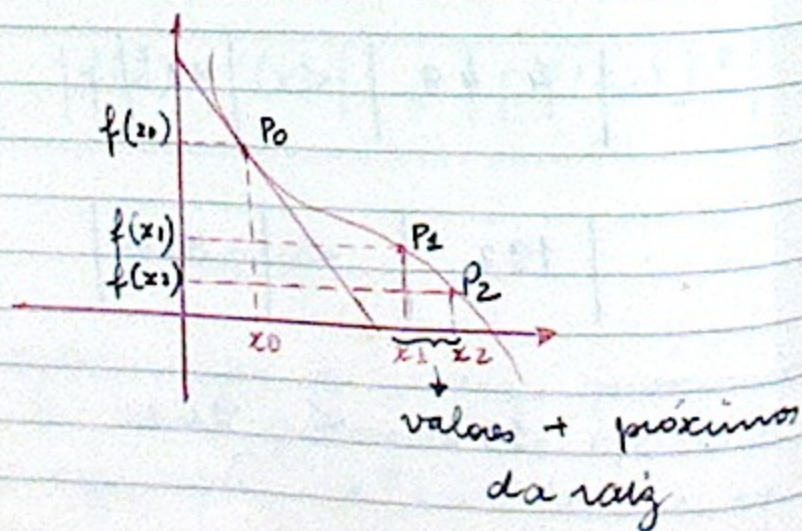 f(x0) P0
f(x1) P1
f(x2) P2
x0 x1 x2
valores + próximos
da raiz